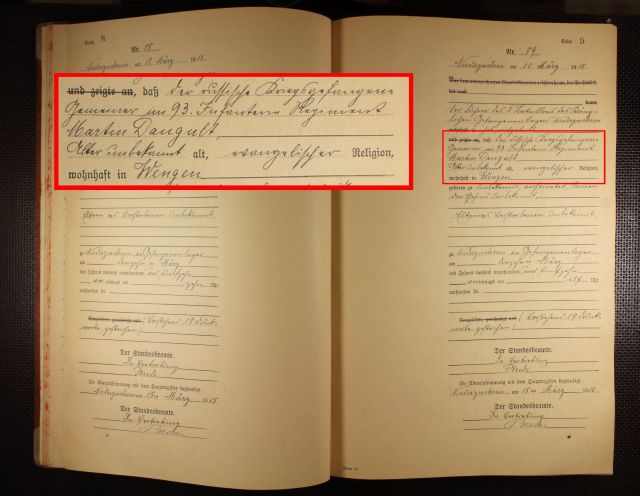 Seite 8
Nr. 88
Niederzwehren am 15 März 1915
und zeigte an, daß der russische Kriegsgefangene
Gemeiner im 93. Infanterie Regiment
Martin Dangult,
Alter unbekannt alt, evangelischer Religion,
wohnhaft in Wengen
Eltern des Verstorbenen unbekannt
zu Niederzwehren im Gefangenenlager
am März
des Jahres tausend neunhundert und fünfzehn
vor mittags um zehn Uhr
verstorben sei.
Vorgelesen, genehmigt und (Vorstehend 18 Druck-
worte gestrichen)
Der Standesbeamte.
In Vertretung
Die Übereinstimmung mit dem Hauptregister beglaubigt
Niederzwehren am 15ten März 1915
Der Standesbeamte.
In Vertretung
Seite 9
Nr. 89
Niederzwehren am 15. März 1915
Vor dem unterzeichneten Standesbeamten erschien heute, der Persönlichkeit
nach
kannt,
und zeigte an, daß der russische Kriegsgefangene
Gemeiner im 93. Infanterie Regiment
Martin Dangult,
Alter unbekannt alt, evangelischer Religion,
wohnhaft in Wengen
geboren zu unbekannt, verheiratet, Namen
der Ehefrau unbekannt
Eltern des Verstorbenen unbekannt
zu Niederzwehren im Gefangenenlager
am März
des Jahres tausend neunhundert und fünfzehn
vormittags um Uhr
verstorben sei.
Vorgelesen, genehmigt und (Vorstehend 19 Druck-
worte gestrichen)
Der Standesbeamte.
In Vertretung
Die Übereinstimmung mit dem Hauptregister beglaubigt
Niederzwehren am 15ten März 1915
Der Standesbeamte.
In Vertretung